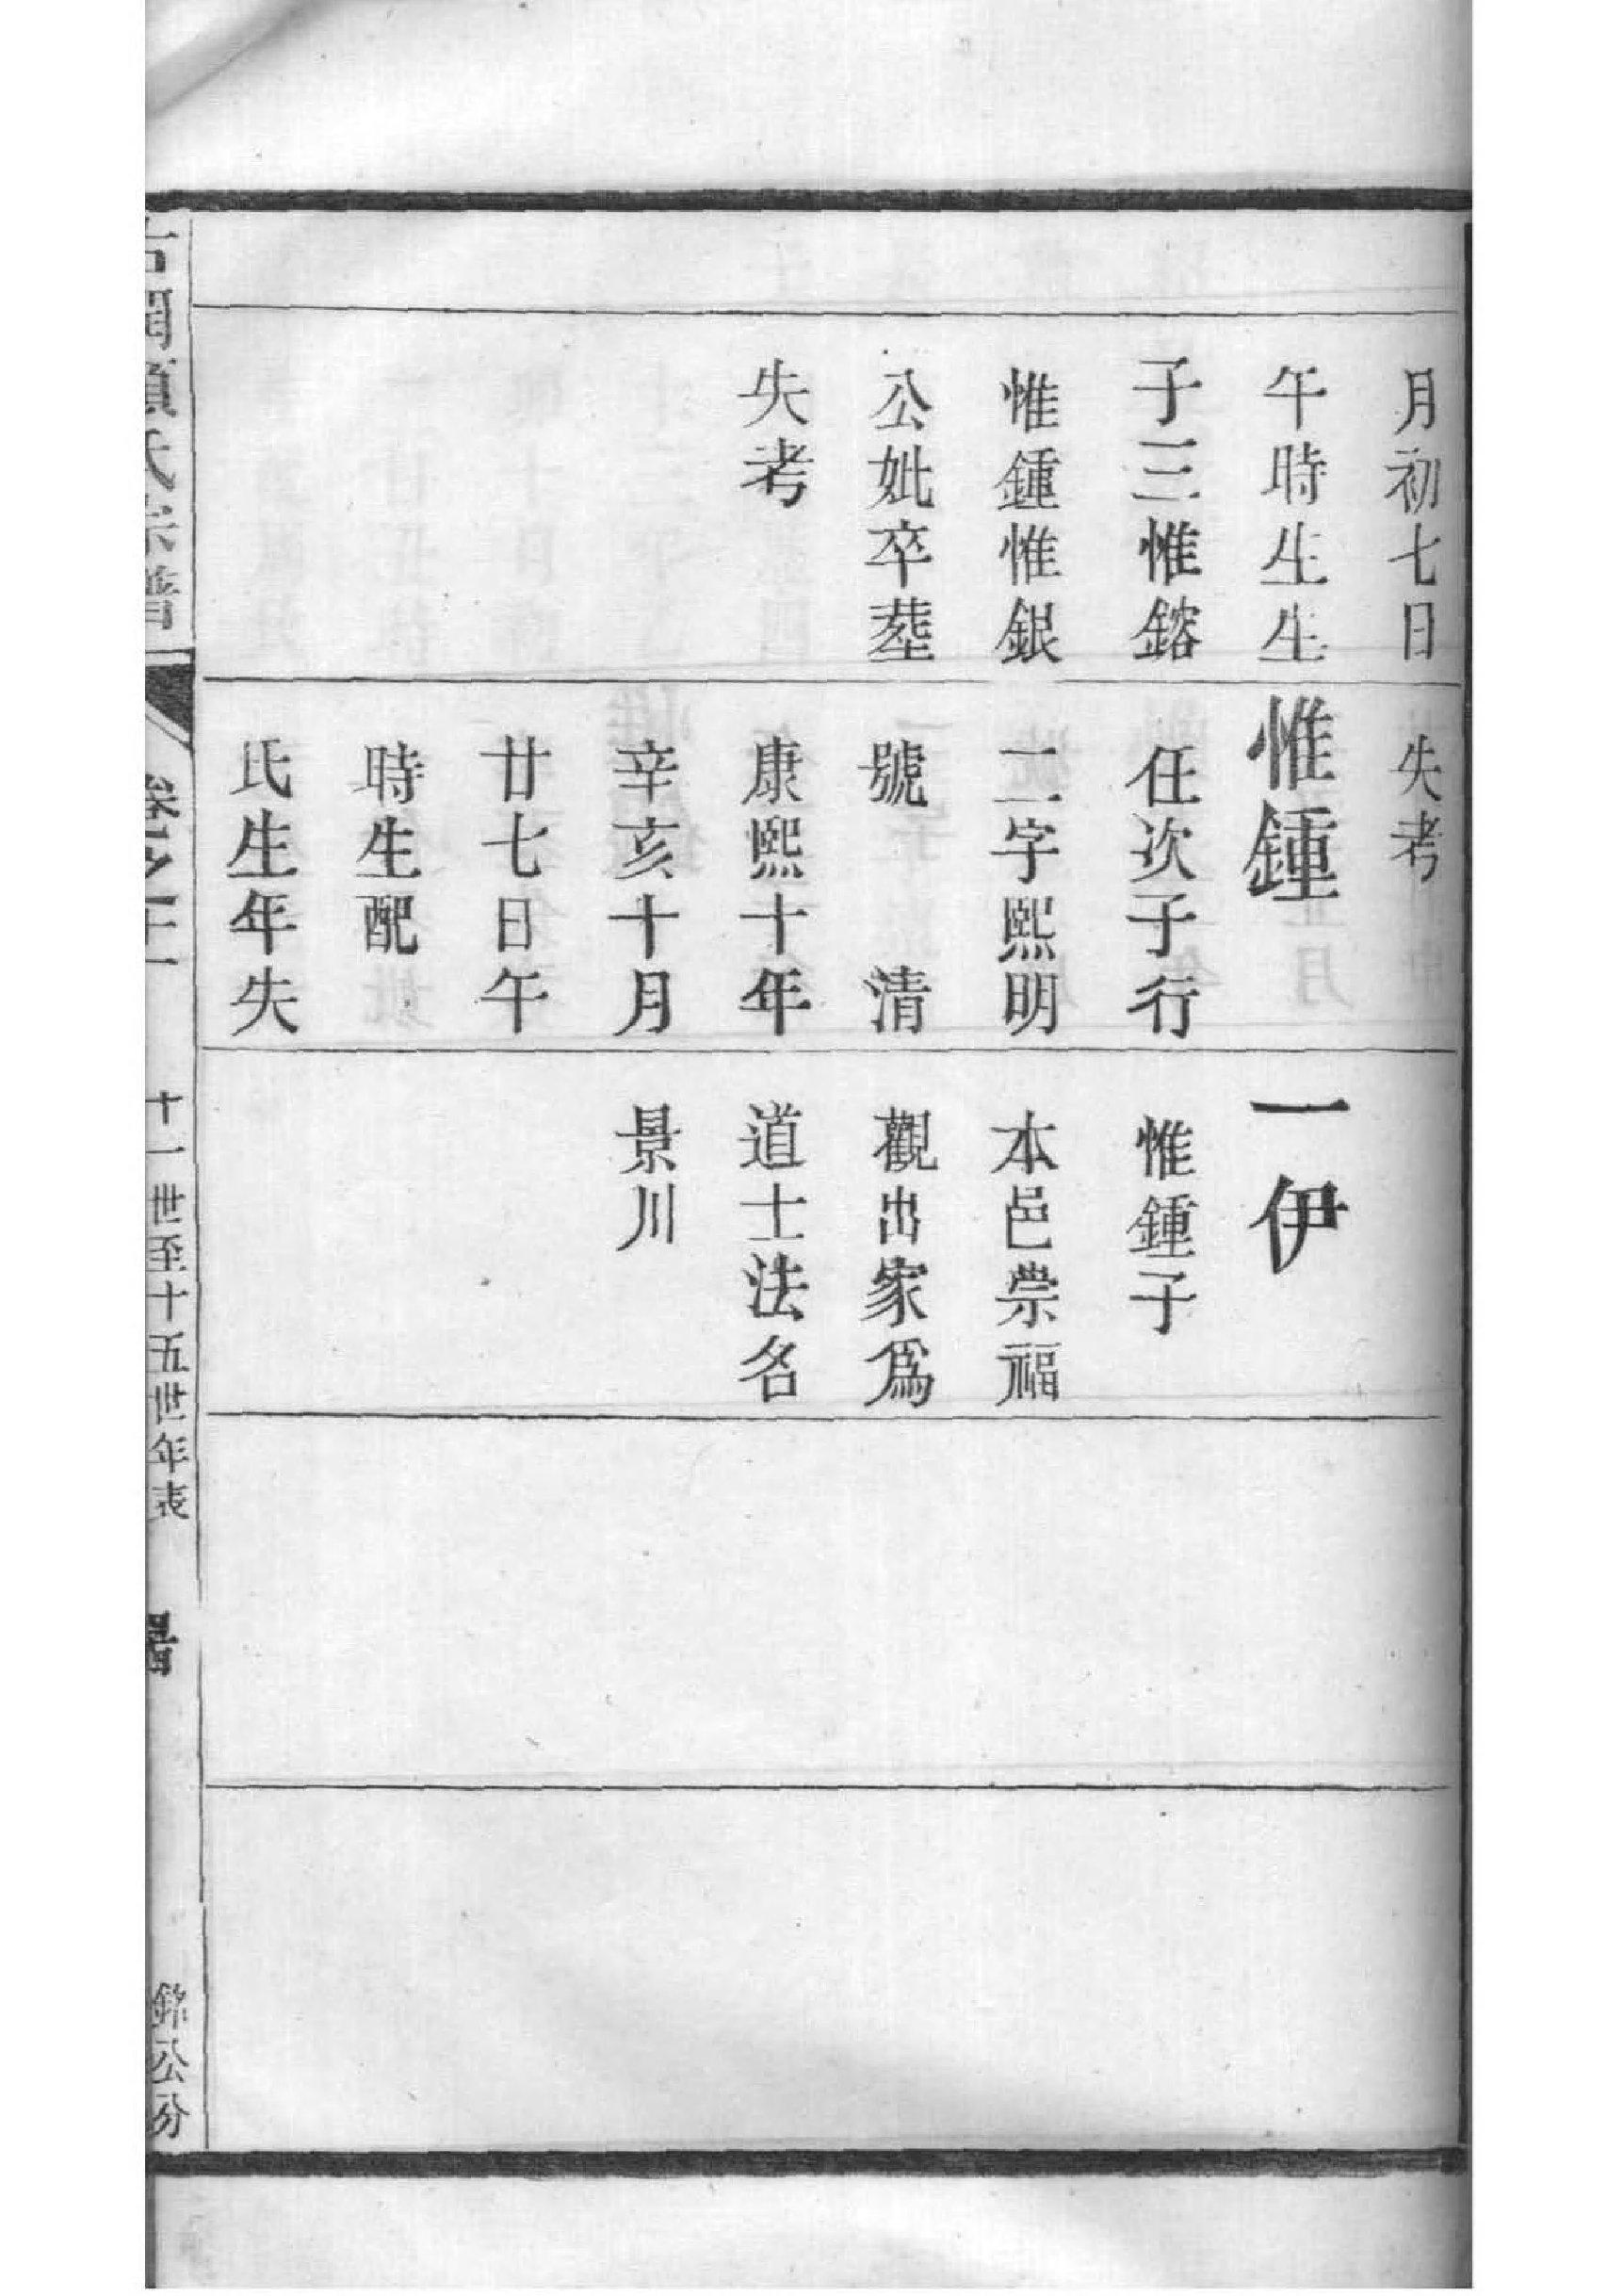 月初七日
午時生生
子三惟鎔
惟鍾惟銀
公妣卒塟
失考
失考
惟鍾
任次子行
二字熙明
號　清
康熙十年
辛亥十月
廿七日午
時生配
氏生年失
一伊
惟鍾子
本邑崇福
觀出家爲
道士法名
景川
氏宗譜
卷之
十一世至十五世年表
公分